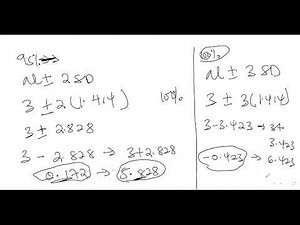 95%
M ± 2SD
3 ± 2(1.414)
3 ± 2.828
3 - 2.828 → 3+2.828
0.172 → 5.828
100%
M ± 3SD
3 ± 3(1.414)
3-3.423 →
3.423
-0.423 → 6.423